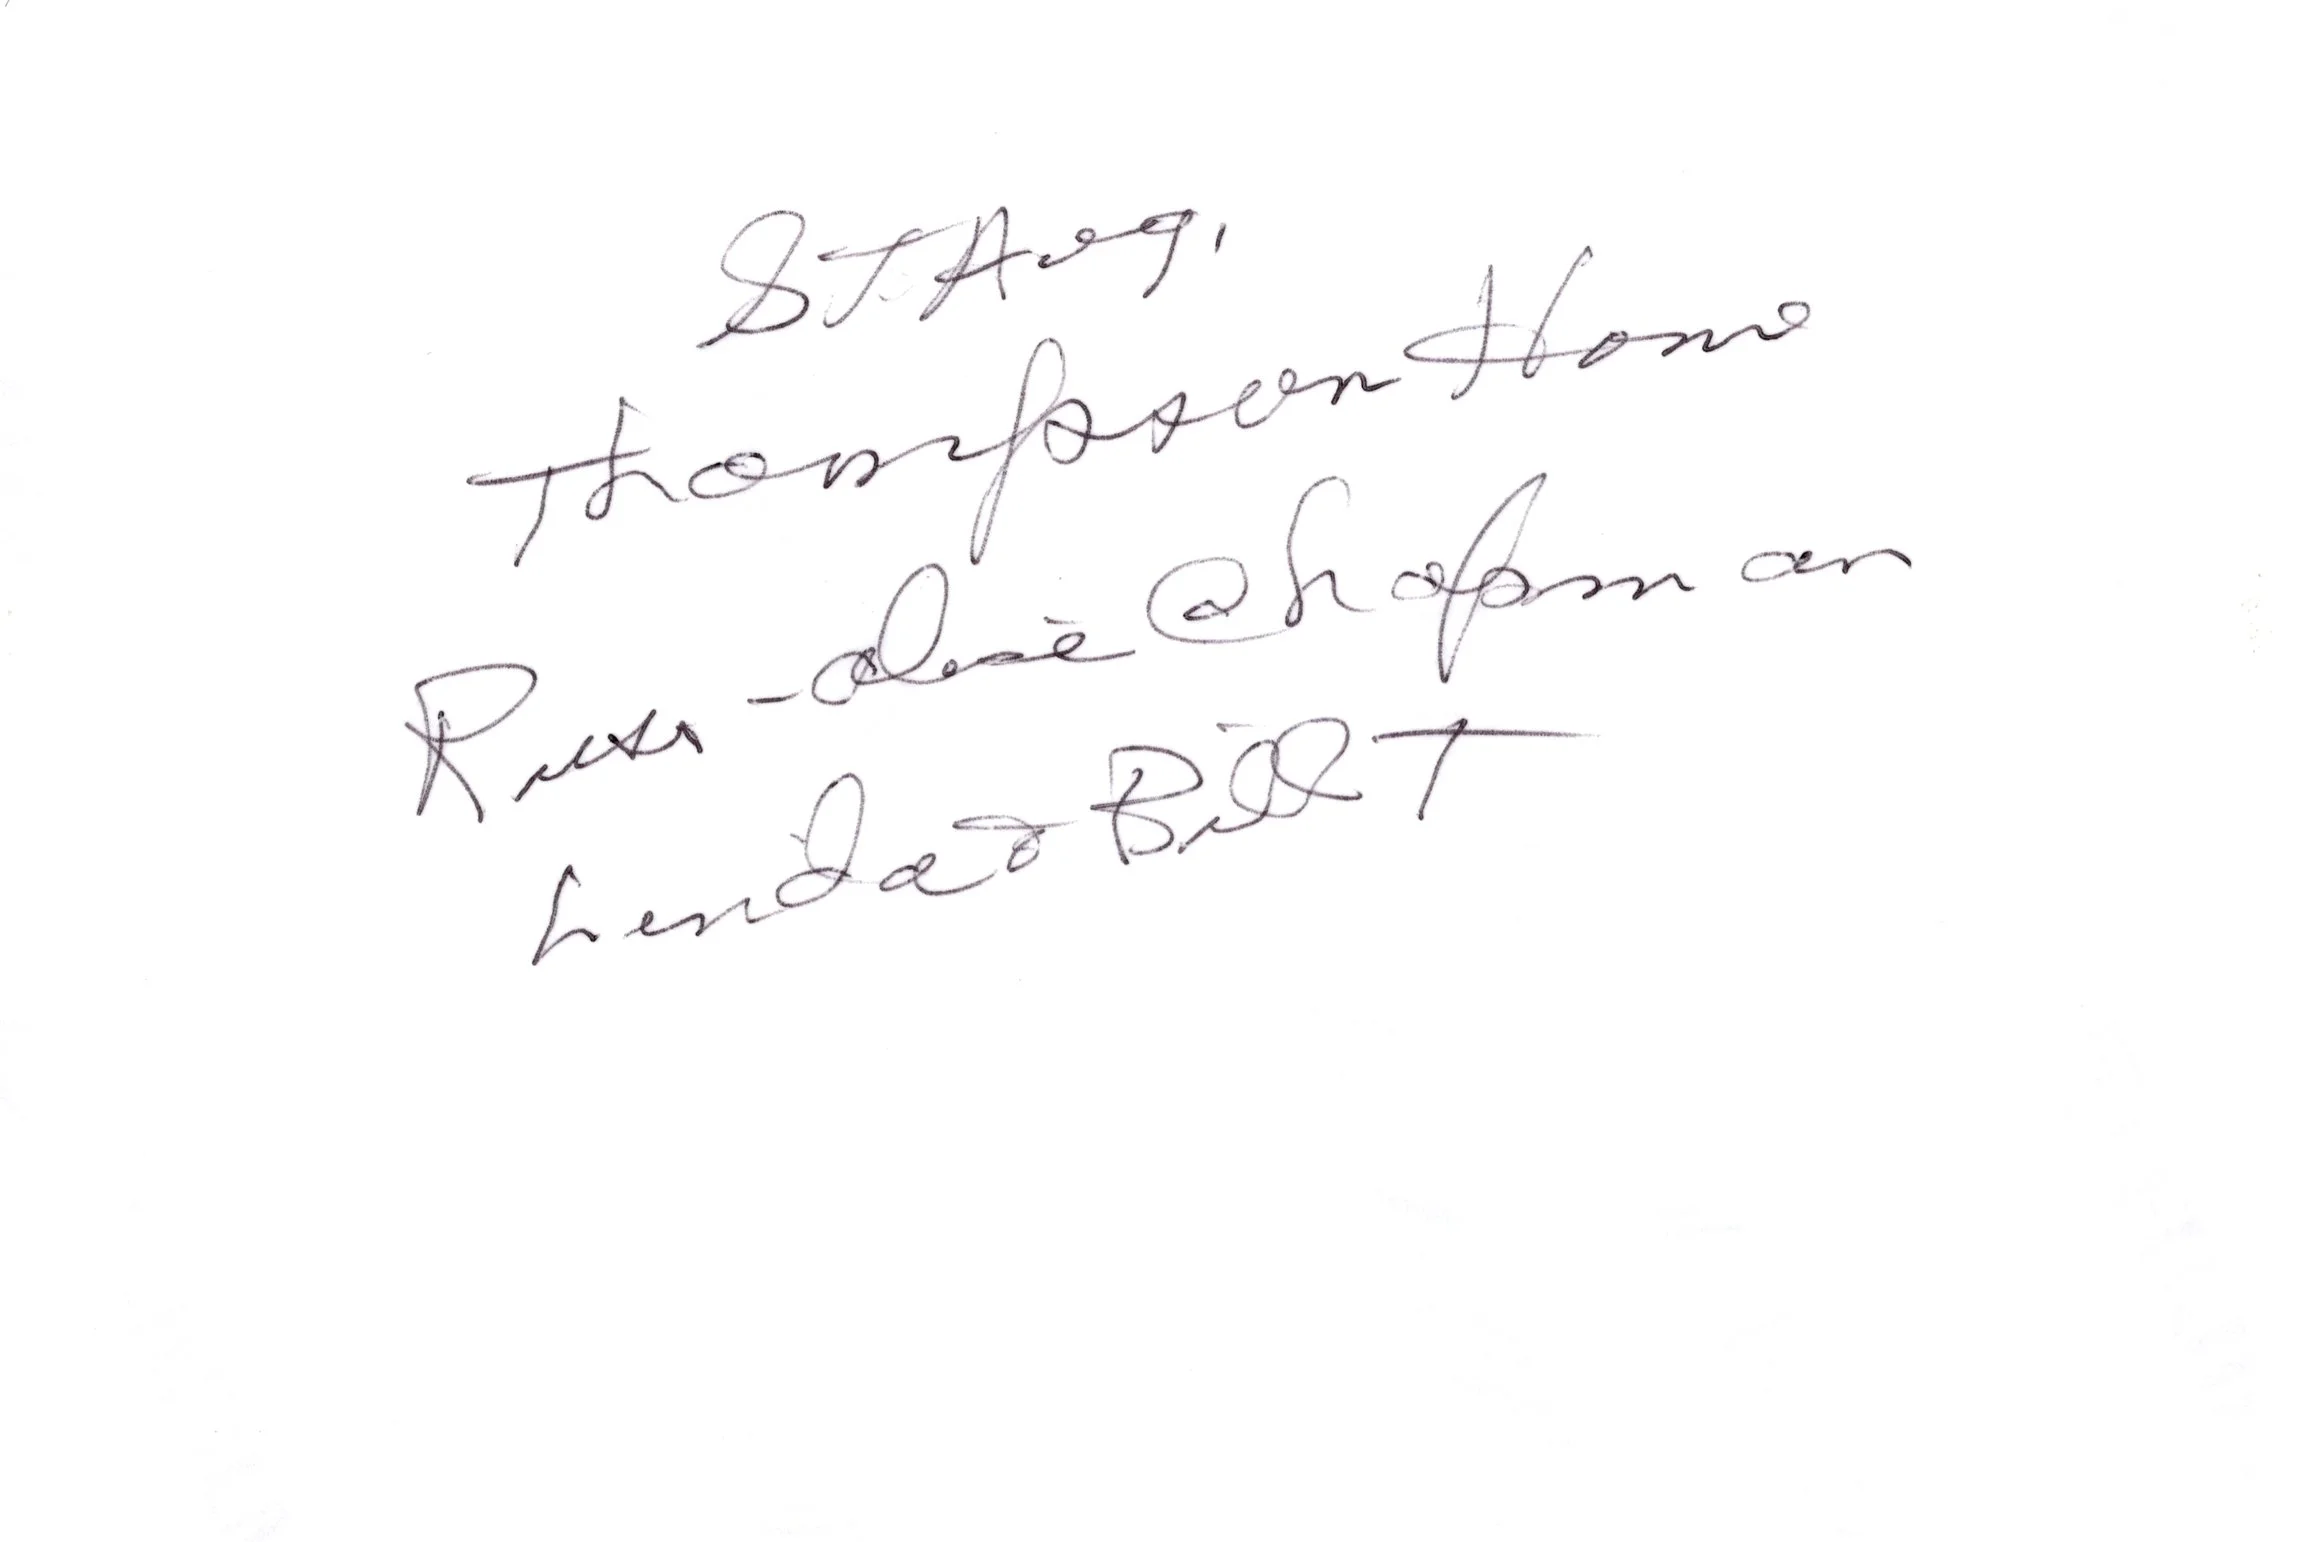 St. Aug.
Thompson Home
Russ - Alice Chapman
Linda + Bill T